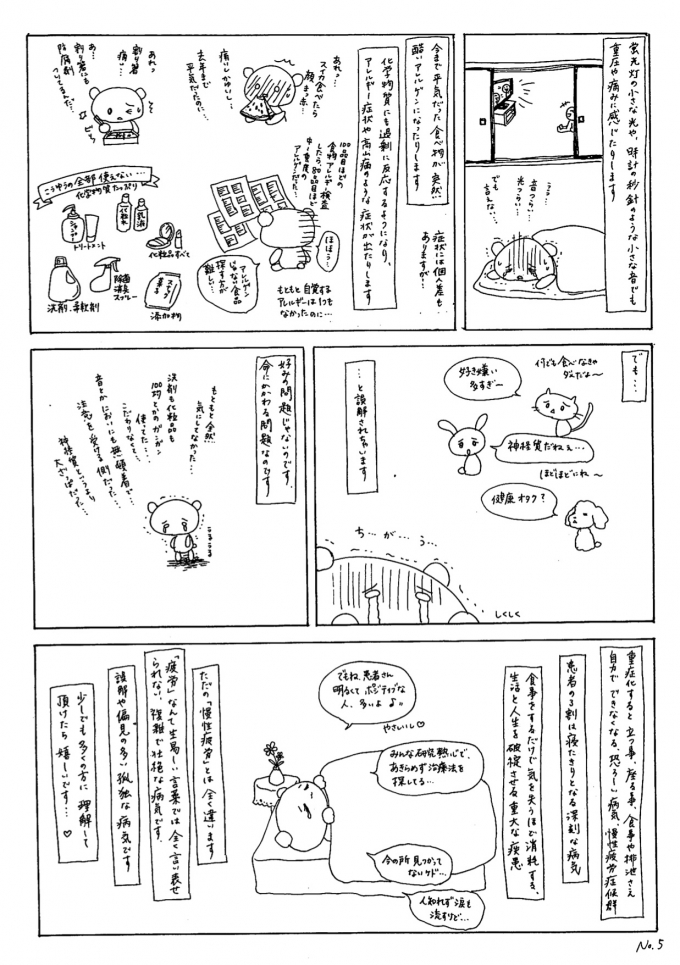 蛍光灯の小さな光や、時計の秒針のような小さな音でも
重圧や痛みに感じたりします
音つら…
光つら…
でも
言えな…
今まで平気だった食べ物が突然
酷いアレルゲンになったりします
症状には個人差も
ありますが…
化学物質にも過剰に反応するようになり、
アレルギー症状や高山病のような症状が出たりします
あれっ…
スイカ食べたら
顔まっ赤…
痛いしかゆいし…
去年まで
平気だったのに…
あれっ
割り箸
痛い…
あ…
割り箸にも
防腐剤
ついてるんだ…
ピリ
こうゆうの全部使えない…
化学物質たっぷり
シャンプー
トリートメント
化粧水
乳液
化粧品すべて
洗剤・柔軟剤
除菌
消臭
スプレー
スナック菓子
添加物
100品目ほどの
食物アレルギー検査
したら80品目ほど
中〜重度の
アレルギーだった…
ほぼう…
アレルギー
じゃない食品
探す方が
難しい…
もともと自覚する
アレルギーは1つも
なかったのに…
でも…
何でも食べなきゃ
ダメだよ〜
好き嫌い
多すぎ〜
神経質だねぇ…
ほどほどにね〜
健康オタク？
…と誤解されちゃいます
ち…が…う…
しくしく
好みの問題じゃないのです。
命にかかわる問題なのです
もともと全然
気にしてなかった…
洗剤も化粧品も
100均とかのガンガン
使ってた…
こだわりなくて…
音とかにおいにも無頓着で
注意を受ける側だった…
神経質というより
大ざっぱだった…
重症化すると立つ事、座る事、食事や排泄さえ
自力でできなくなる、恐ろしい病気、慢性疲労症候群
患者の3割は寝たきりとなる深刻な病気
食事をするだけで気を失うほど消耗する、
生活と人生を破綻させる重大な疾患
でもね、患者さん
明るくてポジティブな
人、多いよ♪
やさしいし♡
みんな研究熱心で、
あきらめず治療法を
探してる…
今の所見つかって
ないケド…
人知れず涙も
流すけど…
ただの「慢性疲労」とは全く違います
「疲労」なんて生易しい言葉では全く言い表せ
られない、複雑で壮絶な病気です。
誤解や偏見の多い孤独な病気です
少しでも多くの方に理解して
頂けたら嬉しいです…♡
No.5